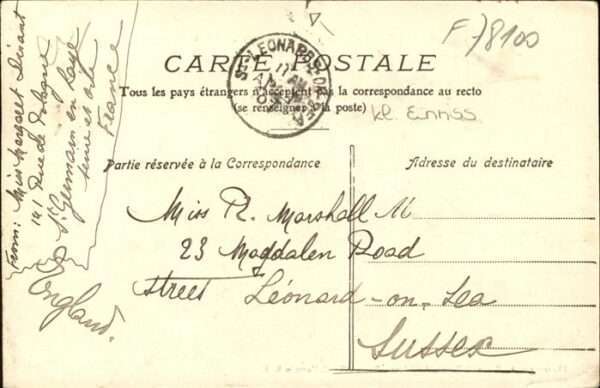 F78100
CARTE POSTALE
Tous les pays étrangers n'acceptent pas la correspondance au recto
(se renseigner à la poste)
Partie réservée à la Correspondance
Adresse du destinataire
ST LEONARDS-ON-SEA
11 AM
AP
05
From: Miss Margaret Dinant
141 Rue de
St Germain en Laye
Seine et Oise
France
Miss R. Marshall M
23 Magdalen Road
Street Léonard-on-Sea
Sussex
England.